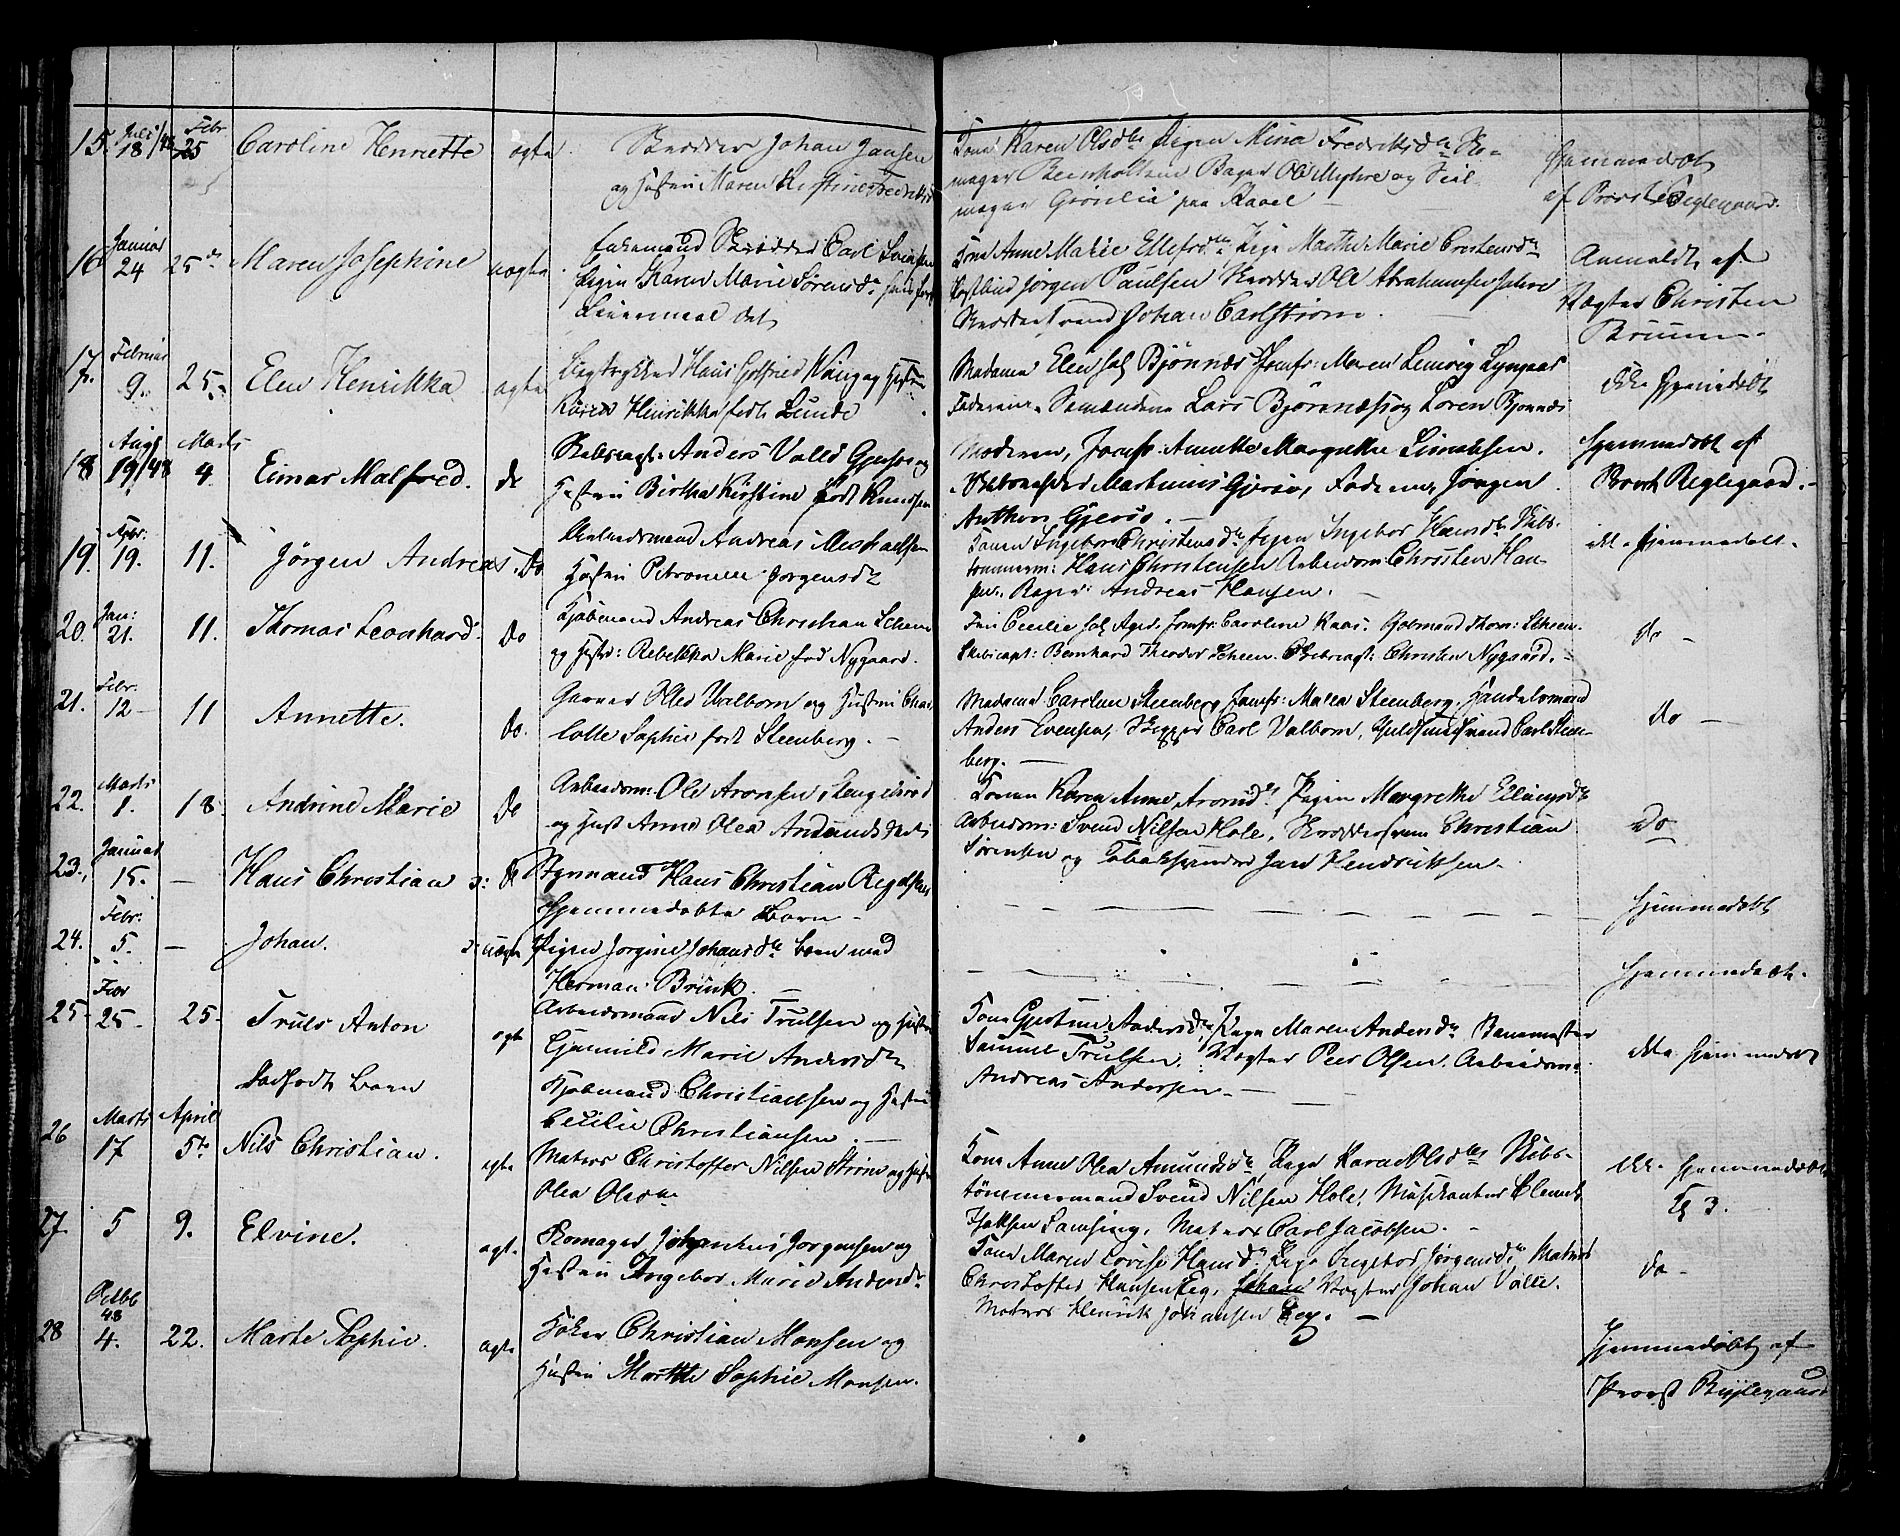 15. Juli 18/48 Febr. 25 Caroline Henriette ægte. Skrædder Johan Jansen
og Hustru Maren Kirstine Fredriksd
Kone Karen Olsdtr Pigen Mina Fredriksdtr Sko-
mager Bernholtsen Bager Ole Myhre og Seil-
mager Grönlie paa Ravel
Hjemmedøbt
af Provst Reglegaard.
16 Januar 24 25de Maren Josephine uægte. Enkemand Skrædder Carl
Pigen Karen Marie Sørensdr
Leiermaal det
Kone Anne Marie Ellefsdtr Pige Marthe Marie Cristensdtr
Postbud Jörgen Paulsen Skrædder Ole Abrahamsen
Skræddersvend Johan Carlström.
Anmeldt af
Vægter Christen
Bruun.
17. Februar 9. 25. Elen Henrikka ægte Bogtrykker Hans Gotfried Wang og Hustru
Karen Henrikka født Lunde
Madame Elen Bjönnæs Jomfr: Maren Lyngaas
Faderen, Sömændene Lars Bjönnæs og Soren Bjönnæs
ikke hjemmedøbt
18 Aug. 19/48 Marts 4. Einar Malfred. do Skibscapt: Anders Valeo Gjersø og
Hustru Birtha Kirstine født Knudsen
Moderen, Jomfr: Annette Margrethe Simonsen.
Martinius Gjersø, Faderen, Jörgen
Anthon Gjersø.
Hjemmedøbt af
Provst Reglegaard.
19. 19. 11. Jörgen Andreas. Do Arbeidsmand Andreas Michaelsen
Hustru Petronelle Jorgensdtr
Konen Ingeborg Christensdtr Pigen Ingebor Hansdtr Skibs-
tommerm: Hans Christensen Arbeidsm: Christen Han-
sen. Bager Andreas Hansen.
ikke hjemmedøbt.
20. Jan: 21. 11. Thomas Leonhard. Do Kjøbmand Andreas Christian Scheen
og Hustru: Rebekka Marie fød Nygaard.
Fru Cecilie Jomfr: Caroline Kaas. Kjøbmand Thom: Scheen.
Skibscapt: Bernhard Theodor Scheen. Skibscapt: Christen Nygaard.
do —
21. Febr: 12 11 Annette. do. Garver Oled Valborn og Hustru Char
lotte Sophie født Steenberg.
Madame Caroline Steenberg Jomfr: Malla Steenberg, Handelsmand
Anders Evensen, Skipper Carl Valborn, Guldsmedsvend Carl Steen-
berg.
do —
22. Marts 1. 18. Andrine Marie do Arbeidsm: Ole Aronsen
og Hust Anne Olea Amundsdatter
Konen Karen Anne Aronsdtr Pigen Margrethe
Arbeidsm: Svend Nilsen Hole, Skræddersvenn Christian
Sörensen og Tobakspinder Jan Hendriksen.
do
23. Januar 15. — Hans Christian Styrmand Hans Christian
hjemmedøbte Barn
Hjemmedøbt
24. Febr: 5. — Johan. uægte Pigen Jorgine Johansdtr barn med
Herman Brink.
Hjemmedøbt.
25. Febr 25 25. Truls Anton ægte Arbeidsmand Nils Trulsen og Hustru
Gunnild Marie Andersdtr
Kone Gjertine Andersdtr, Pige Maren Andersdtr
Samuel Trulsen, Vægter Peer Olsen. Arbeidsm:
Andreas Andersen.
ikke hjemmedøbt
Dødfødt Barn Kjøbmand Christiansen og Hustru
Cecilie Christiansen.
26 Marts 17 April 5te Nils Christian. ægte Matros Christoffer Nilsen og Hustr
Olea Olsdtr
Kone Anne Olea Amundsdtr Pige Karen Olsdtr Skibs-
tömmermand Svend Nilsen Hole, Musikanter
Samsing, Matros Carl Jacobsen.
ikke hjemmedøbt
27. 5 9. Elvine. ægt. Skomager Johannes Jorgensen og
Hustru Ingebor Marie Andersdr
Kone Maren Lovise Hansdtr Pige Ingebor Jørgensdtr, Matros
Christoffer Hansen Eeg, Johan Vægter Johan Valle.
Matros Henrik Johansen Eeg.
do
28 Octbr 48 4. 22. Marte Sophie. ægte Høker Christian Monsen og
Hustru Marthe Sophie Monsen.
Hjemmedøbt af
Provst Reglegaard